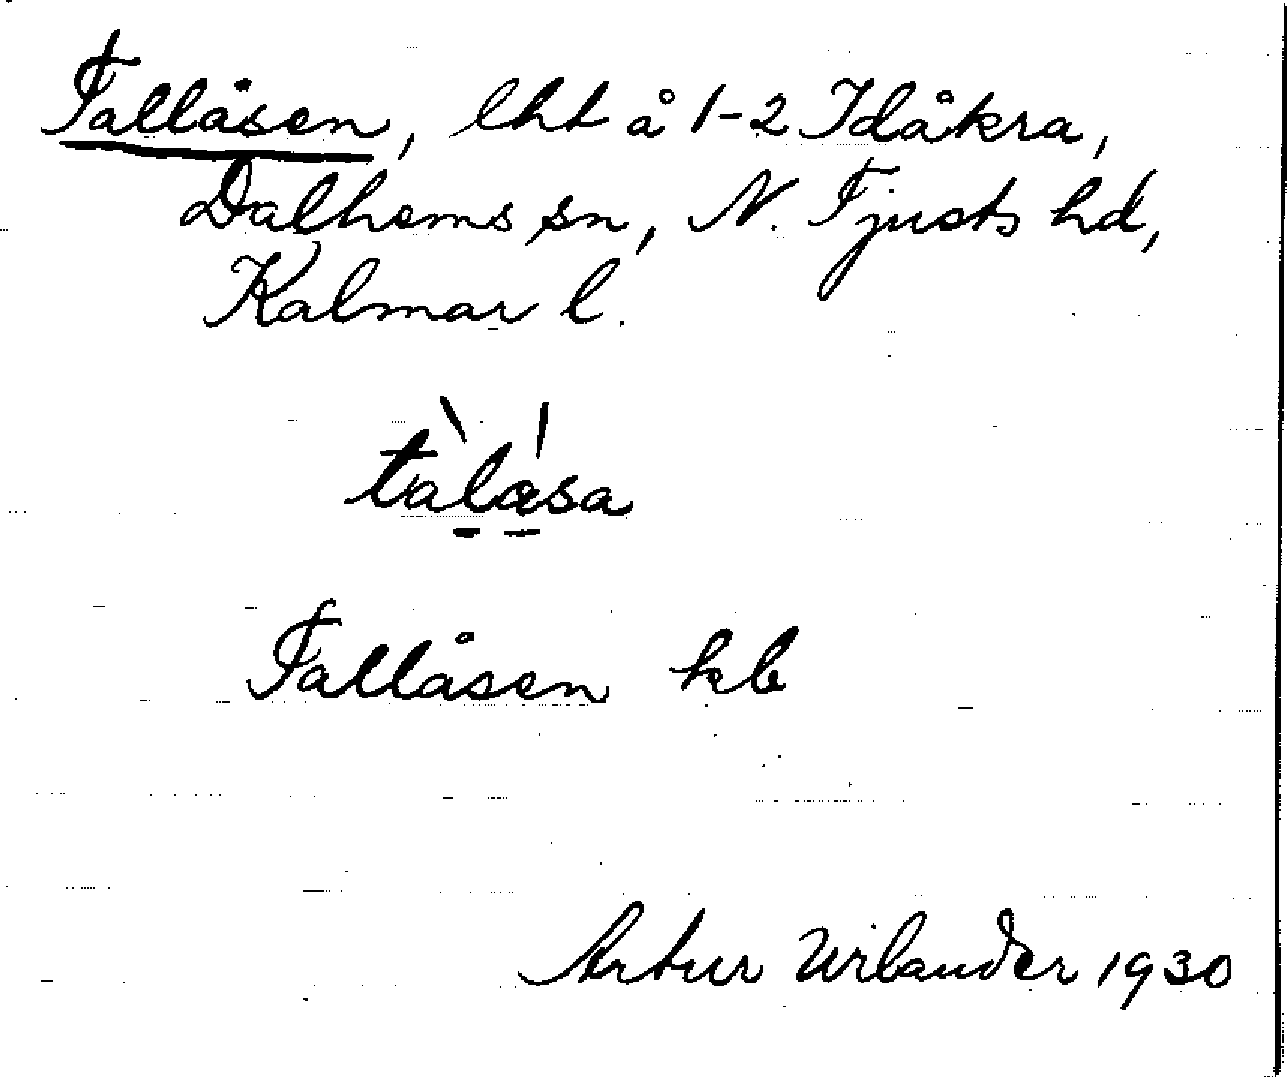 Tallåsen, lht å 1-2 Idåkra,
Dalhems sn, N. Tjusts hd,
Kalmar l.
tàlǻsa
Tallåsen kb
Artur Wilander 1930